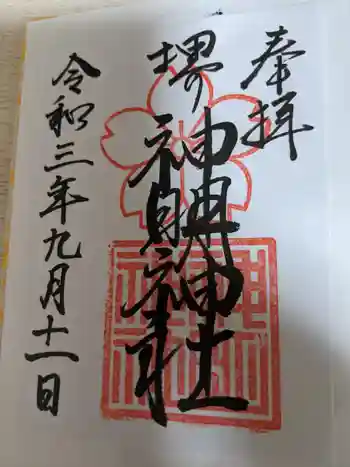 奉拝
堺
神明神社
令和三年九月十一日